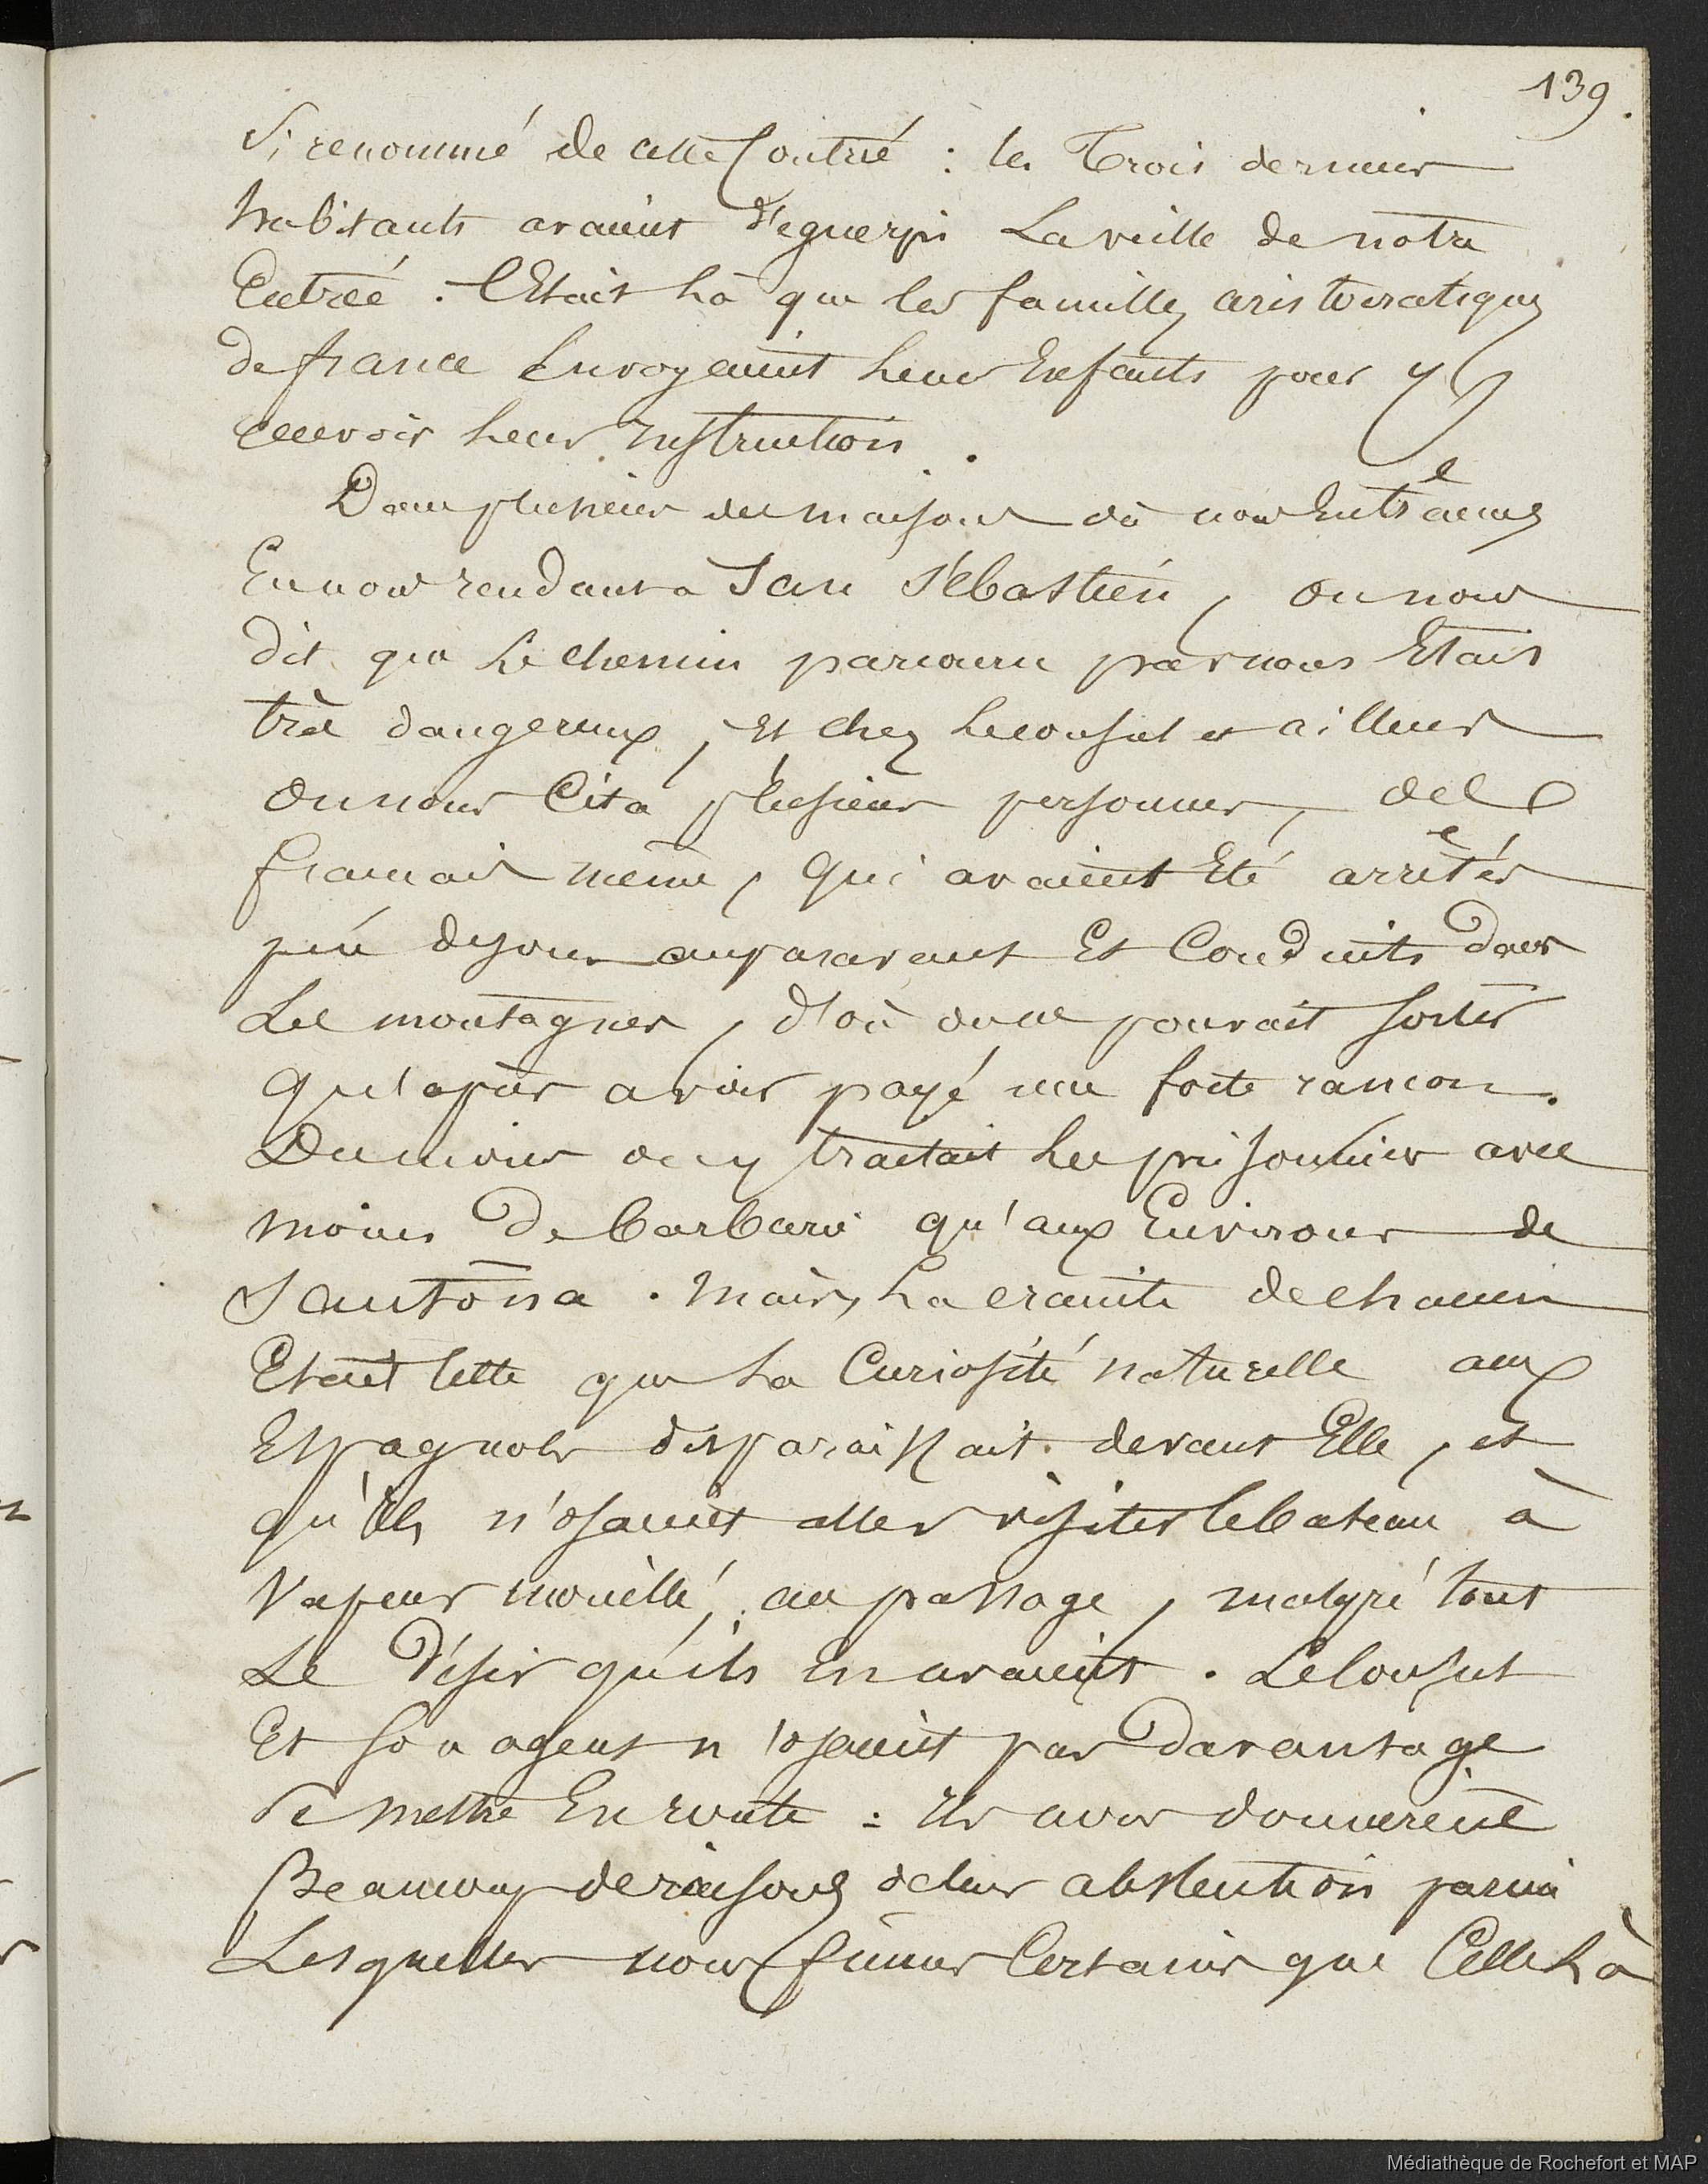 139.
Si renommé de cette Contrée : les Trois derniers
habitants avaient déguerpi La veille de notre
Entrée. C'Etait là que les familles aristocratiques
de france Envoyaient leurs Enfants pour y
recevoir leur Instruction.
Dans plusieurs des maisons où nous Entrâmes
En nous rendant à San Sébastien, on nous
dit que le chemin parcouru par nous Etait
très dangereux, Et chez le consul et ailleurs
on nous Cita plusieurs personnes, des
francais même, qui avaient Eté arrêtés
peu de jours auparavant Et Conduits dans
Les montagnes, d'où on ne pouvait sortir
qu'après avoir payé une forte rancon.
Du moins on y traitait les prisonniers avec
moins de barbarie qu'aux Environs de
Santona. Mais, La crainte de chacun
Etait telle que la Curiosité naturelle aux
Espagnols disparaissait devant Elle, et
qu'ils n'osaient aller visiter le bateau à
Vapeur mouillé au passage, malgré tout
Le désir qu'ils en avaient. Le Consul
Et son agent n'osaient pas Davantage
Se mettre En route : Ils nous donnerent
Beaucoup de raisons de leur abstention parmi
Lesquelles nous fûmes Certains que Celle là
Médiathèque de Rochefort et MAP